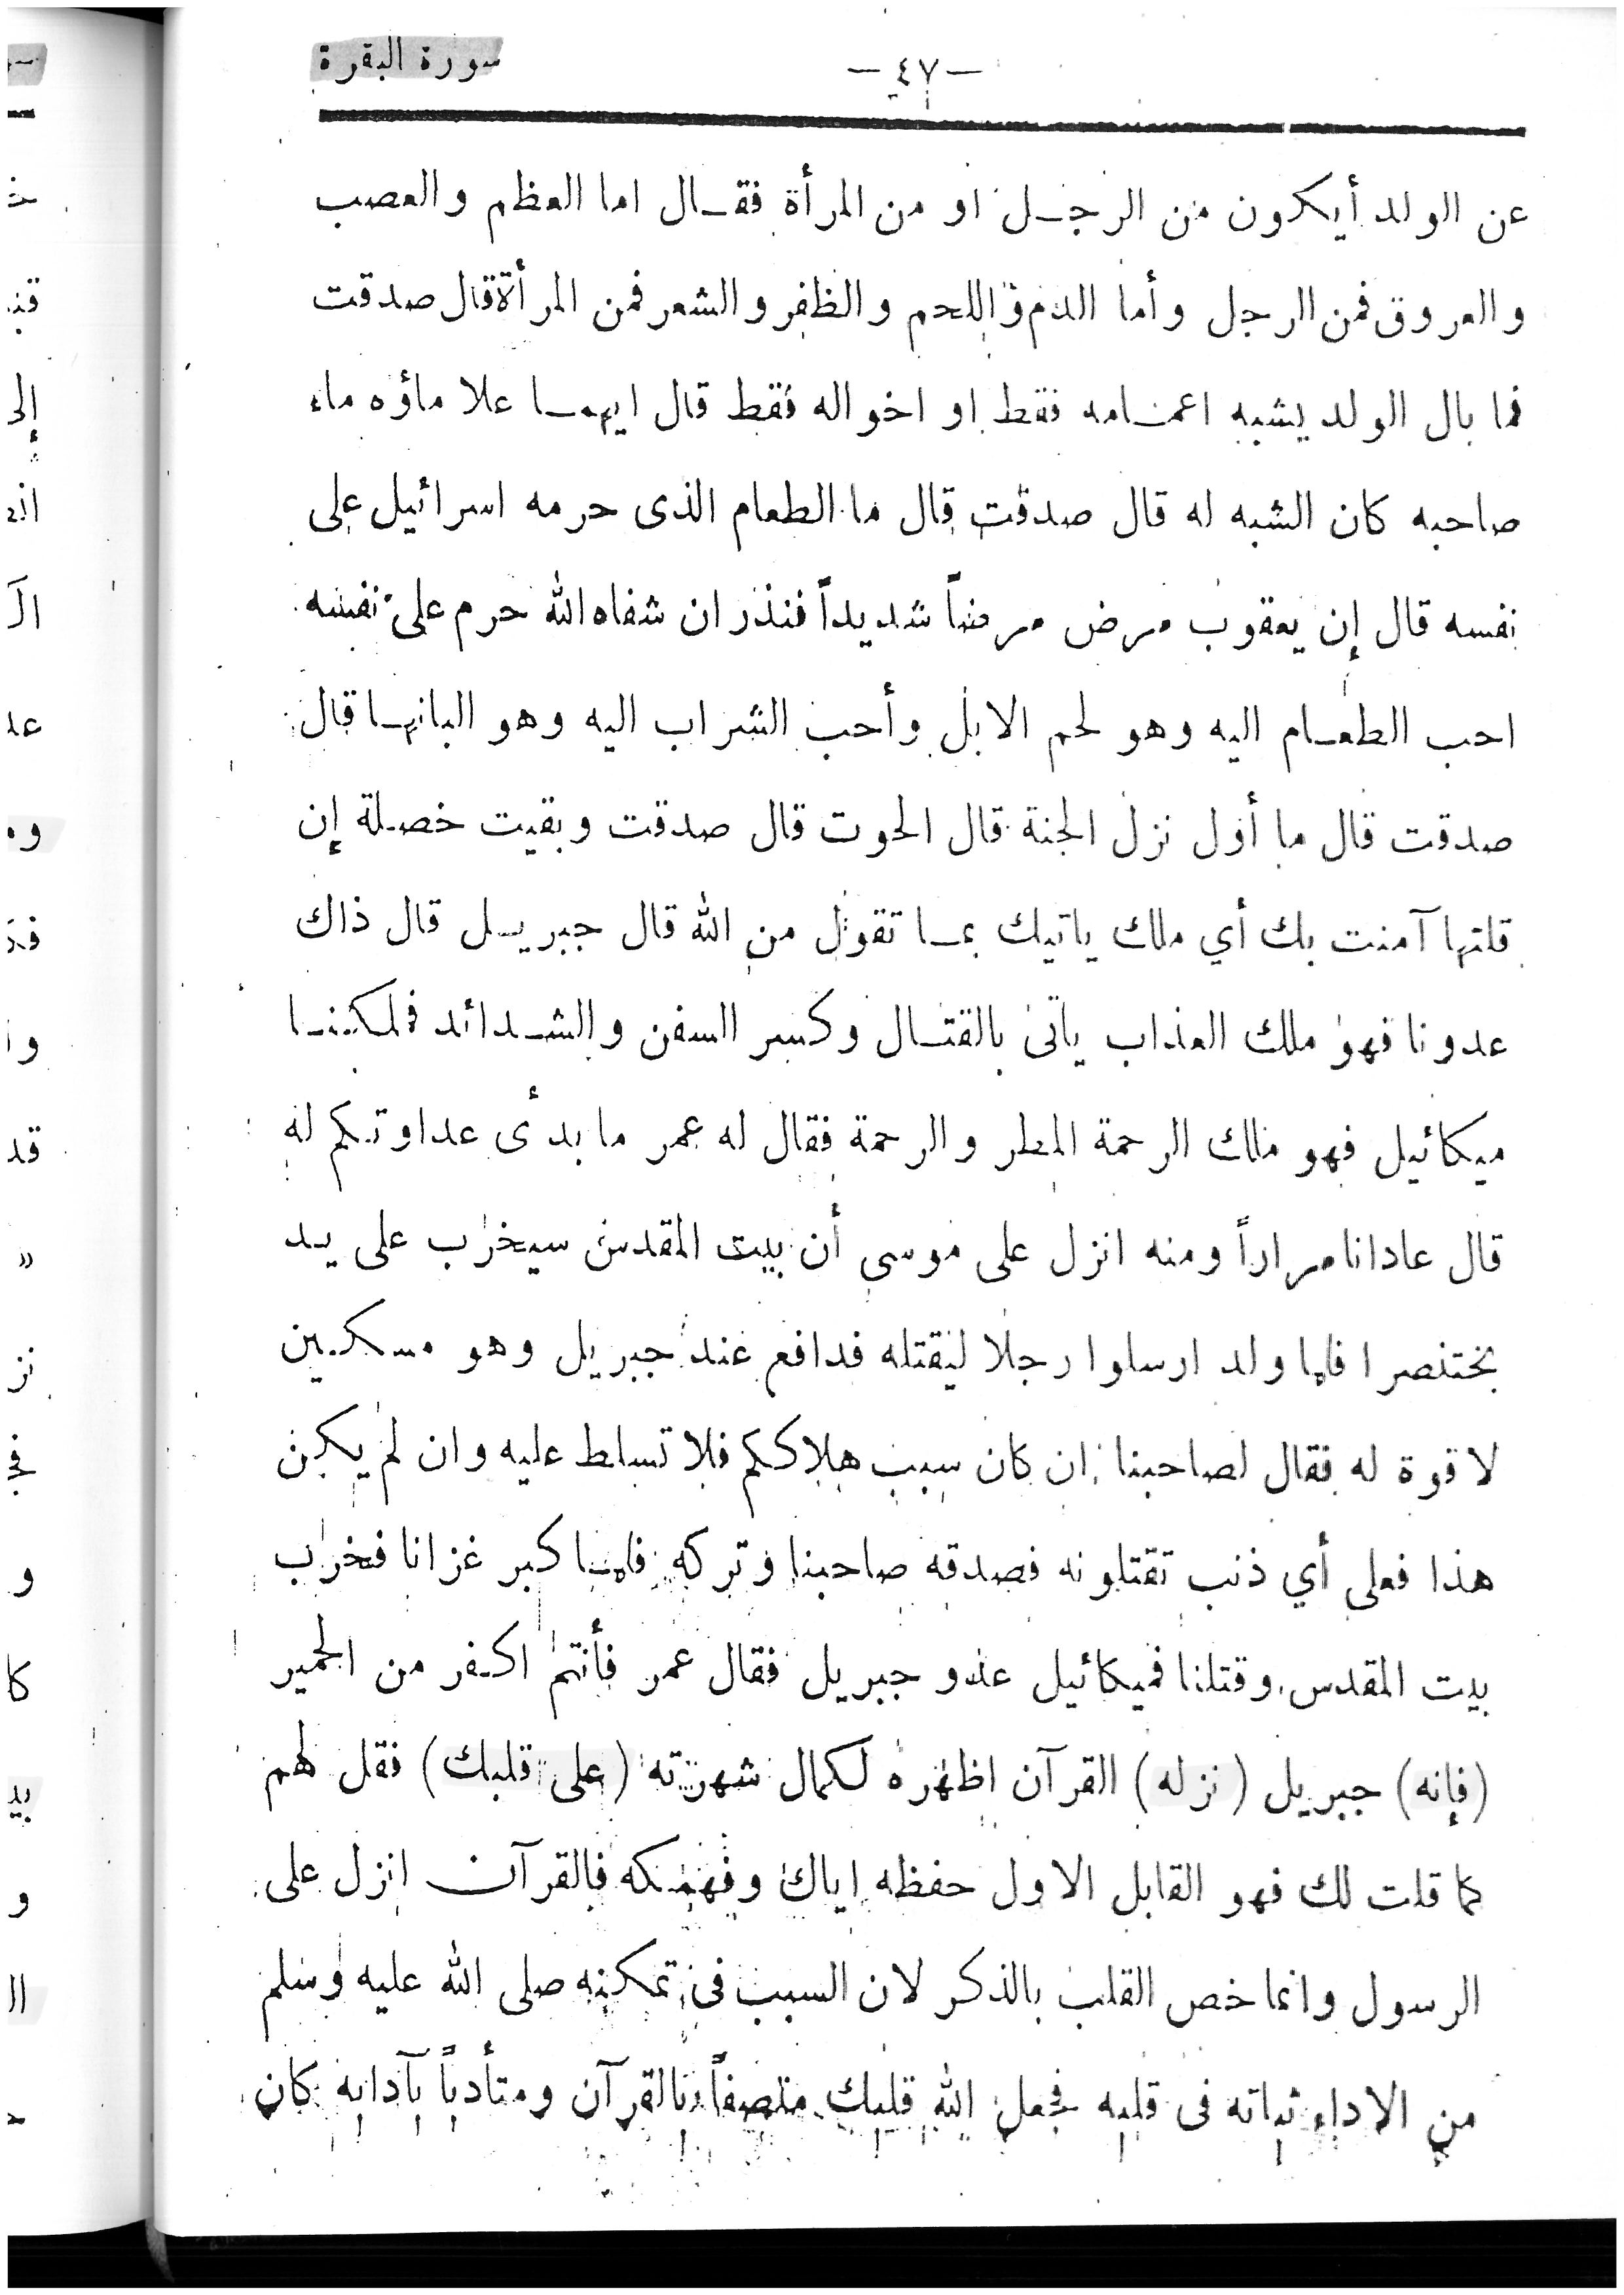 سورة البقرة
— ٤٧ —
عن الولد أيكون من الرجل او من المرأة فقال اما العظم والعصب
والعروق فمن الرجل وأما الدم واللحم والظفر والشعر فمن المرأة قال صدقت
فما بال الولد يشبه اعمامه فقط او اخواله فقط قال ايهما علا ماؤه ماء
صاحبه كان الشبه له قال صدقت قال ما الطعام الذى حرمه اسرائيل على
نفسه قال إن يعقوب مرض مرضاً شديداً فنذر ان شفاه الله حرم على نفسه
احب الطعام اليه وهو لحم الابل وأحب الشراب اليه وهو البانها قال
صدقت قال ما أول نزل الجنة قال الحوت قال صدقت وبقيت خصلة إن
قلتها آمنت بك أي ملك ياتيك بما تقول من الله قال جبريل قال ذاك
عدونا فهو ملك العذاب يأتى بالقتال وكسر السفن والشدائد فلكنا
ميكائيل فهو ملك الرحمة المطر والرحمة فقال له عمر ما بدأى عداوتكم له
قال عادانا مراراً ومنه انزل على موسى أن بيت المقدس سيخرب على يد
بختنصرا فلما ولد ارسلوا رجلا ليقتله فدافع عند جبريل وهو مسكين
لا قوة له فقال لصاحبنا ان كان سبب هلاككم فلا تسلط عليه وان لم يكن
هذا فعلى أي ذنب تقتلونه فصدقه صاحبنا وتركه فلما كبر غزانا فخرب
بيت المقدس وقتلنا فميكائيل عدو جبريل فقال عمر فأنتم اكفر من الحمير
(فإنه) جبريل (نزله) القرآن اظهره لكمال شهرته (على قلبك) فقل لهم
كما قلت لك فهو القابل الاول حفظه اياك وفهمكه فالقرآن انزل على
الرسول وانما خص القلب بالذكر لان السبب فى تمكنه صلى الله عليه وسلم
من الاداء ثباته فى قلبه فجعل الله قلبك متصفاً بالقرآن ومتأدباً بآدابه كان